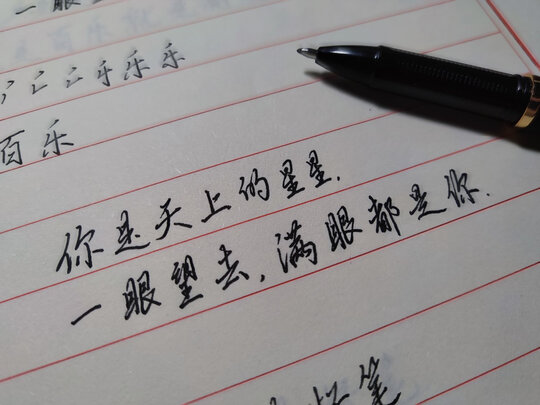 一眼
乐乐乐
百乐
你是天上的星星.
一眼望去,满眼都是你.
笔